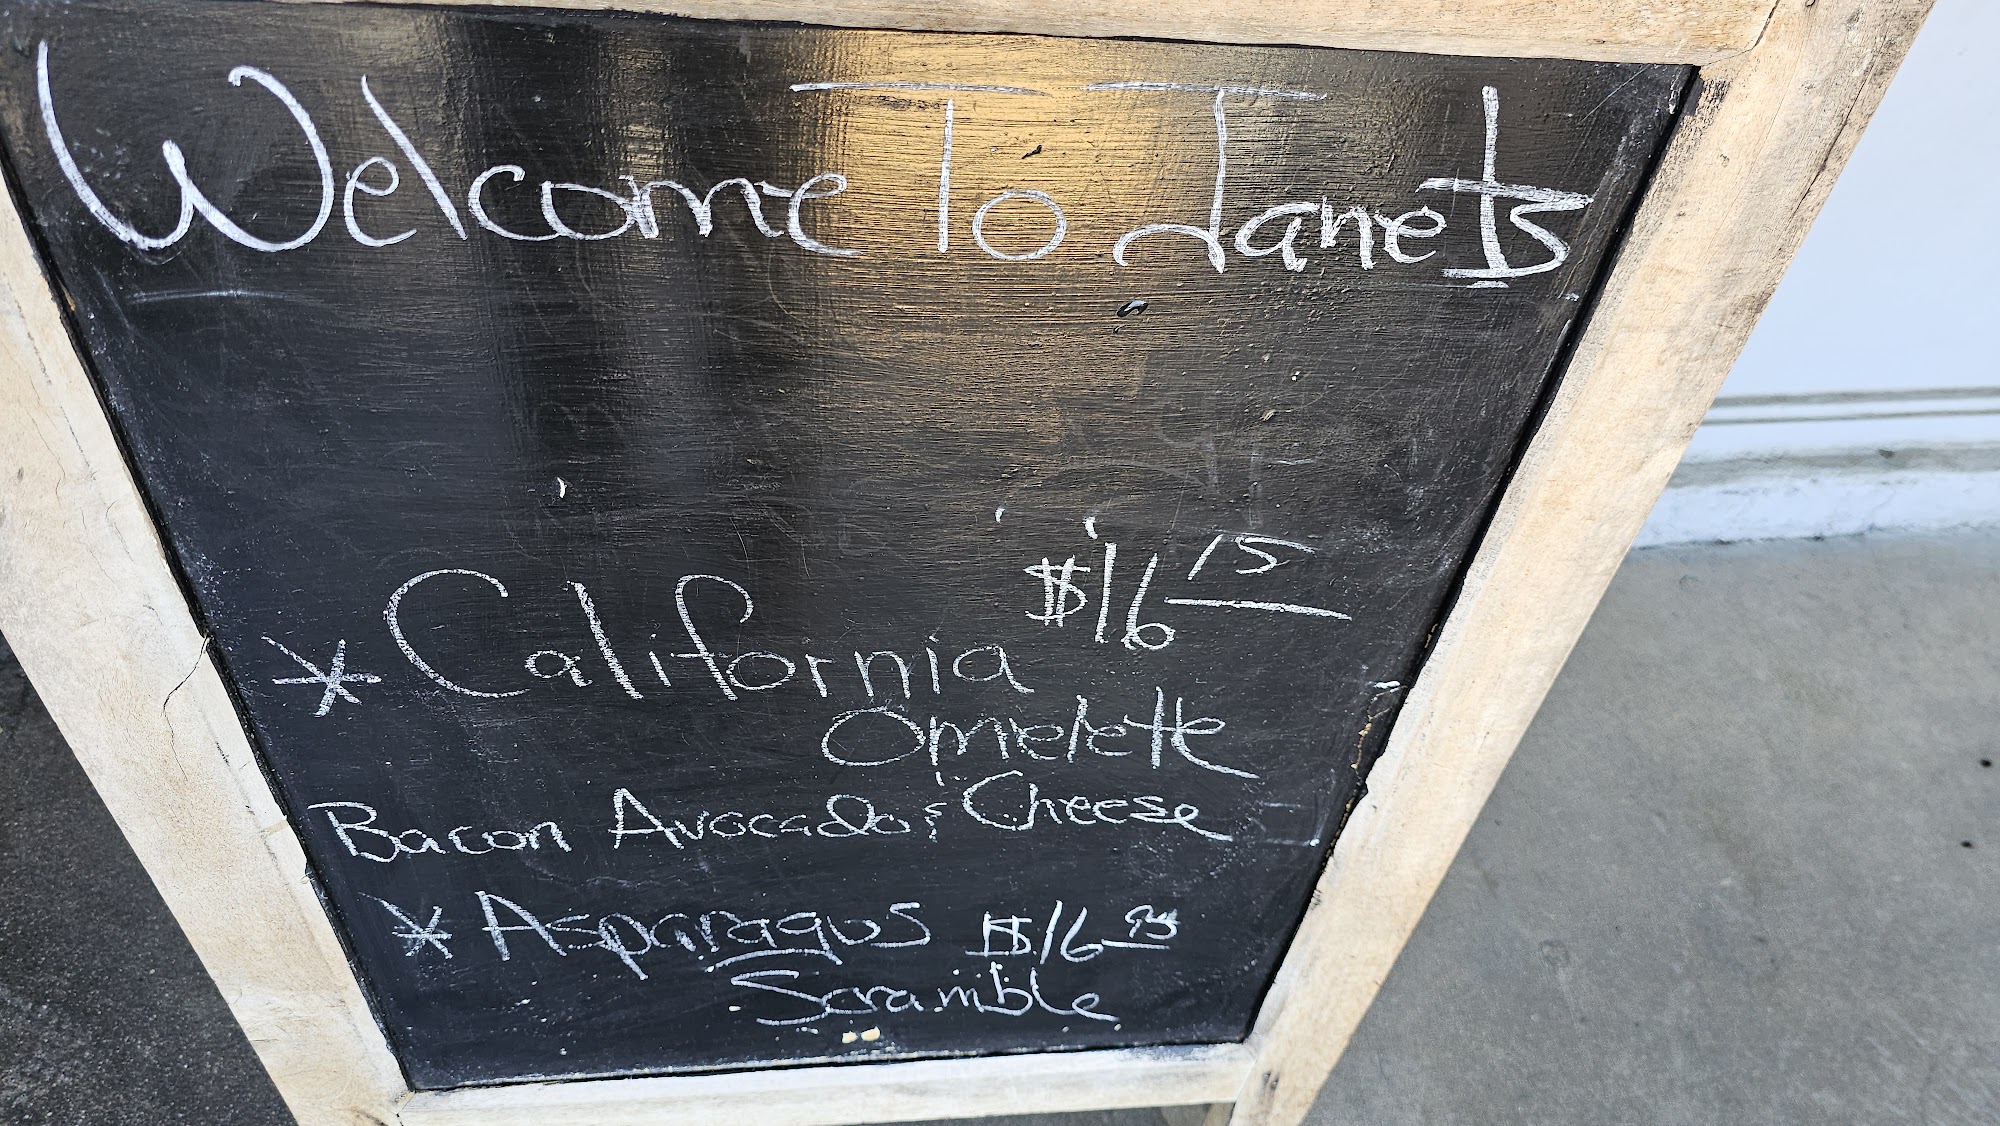 Welcome To Janets
$16 15
* California
Omelette
Bacon Avocado & Cheese
* Asparagus $16
Scramble